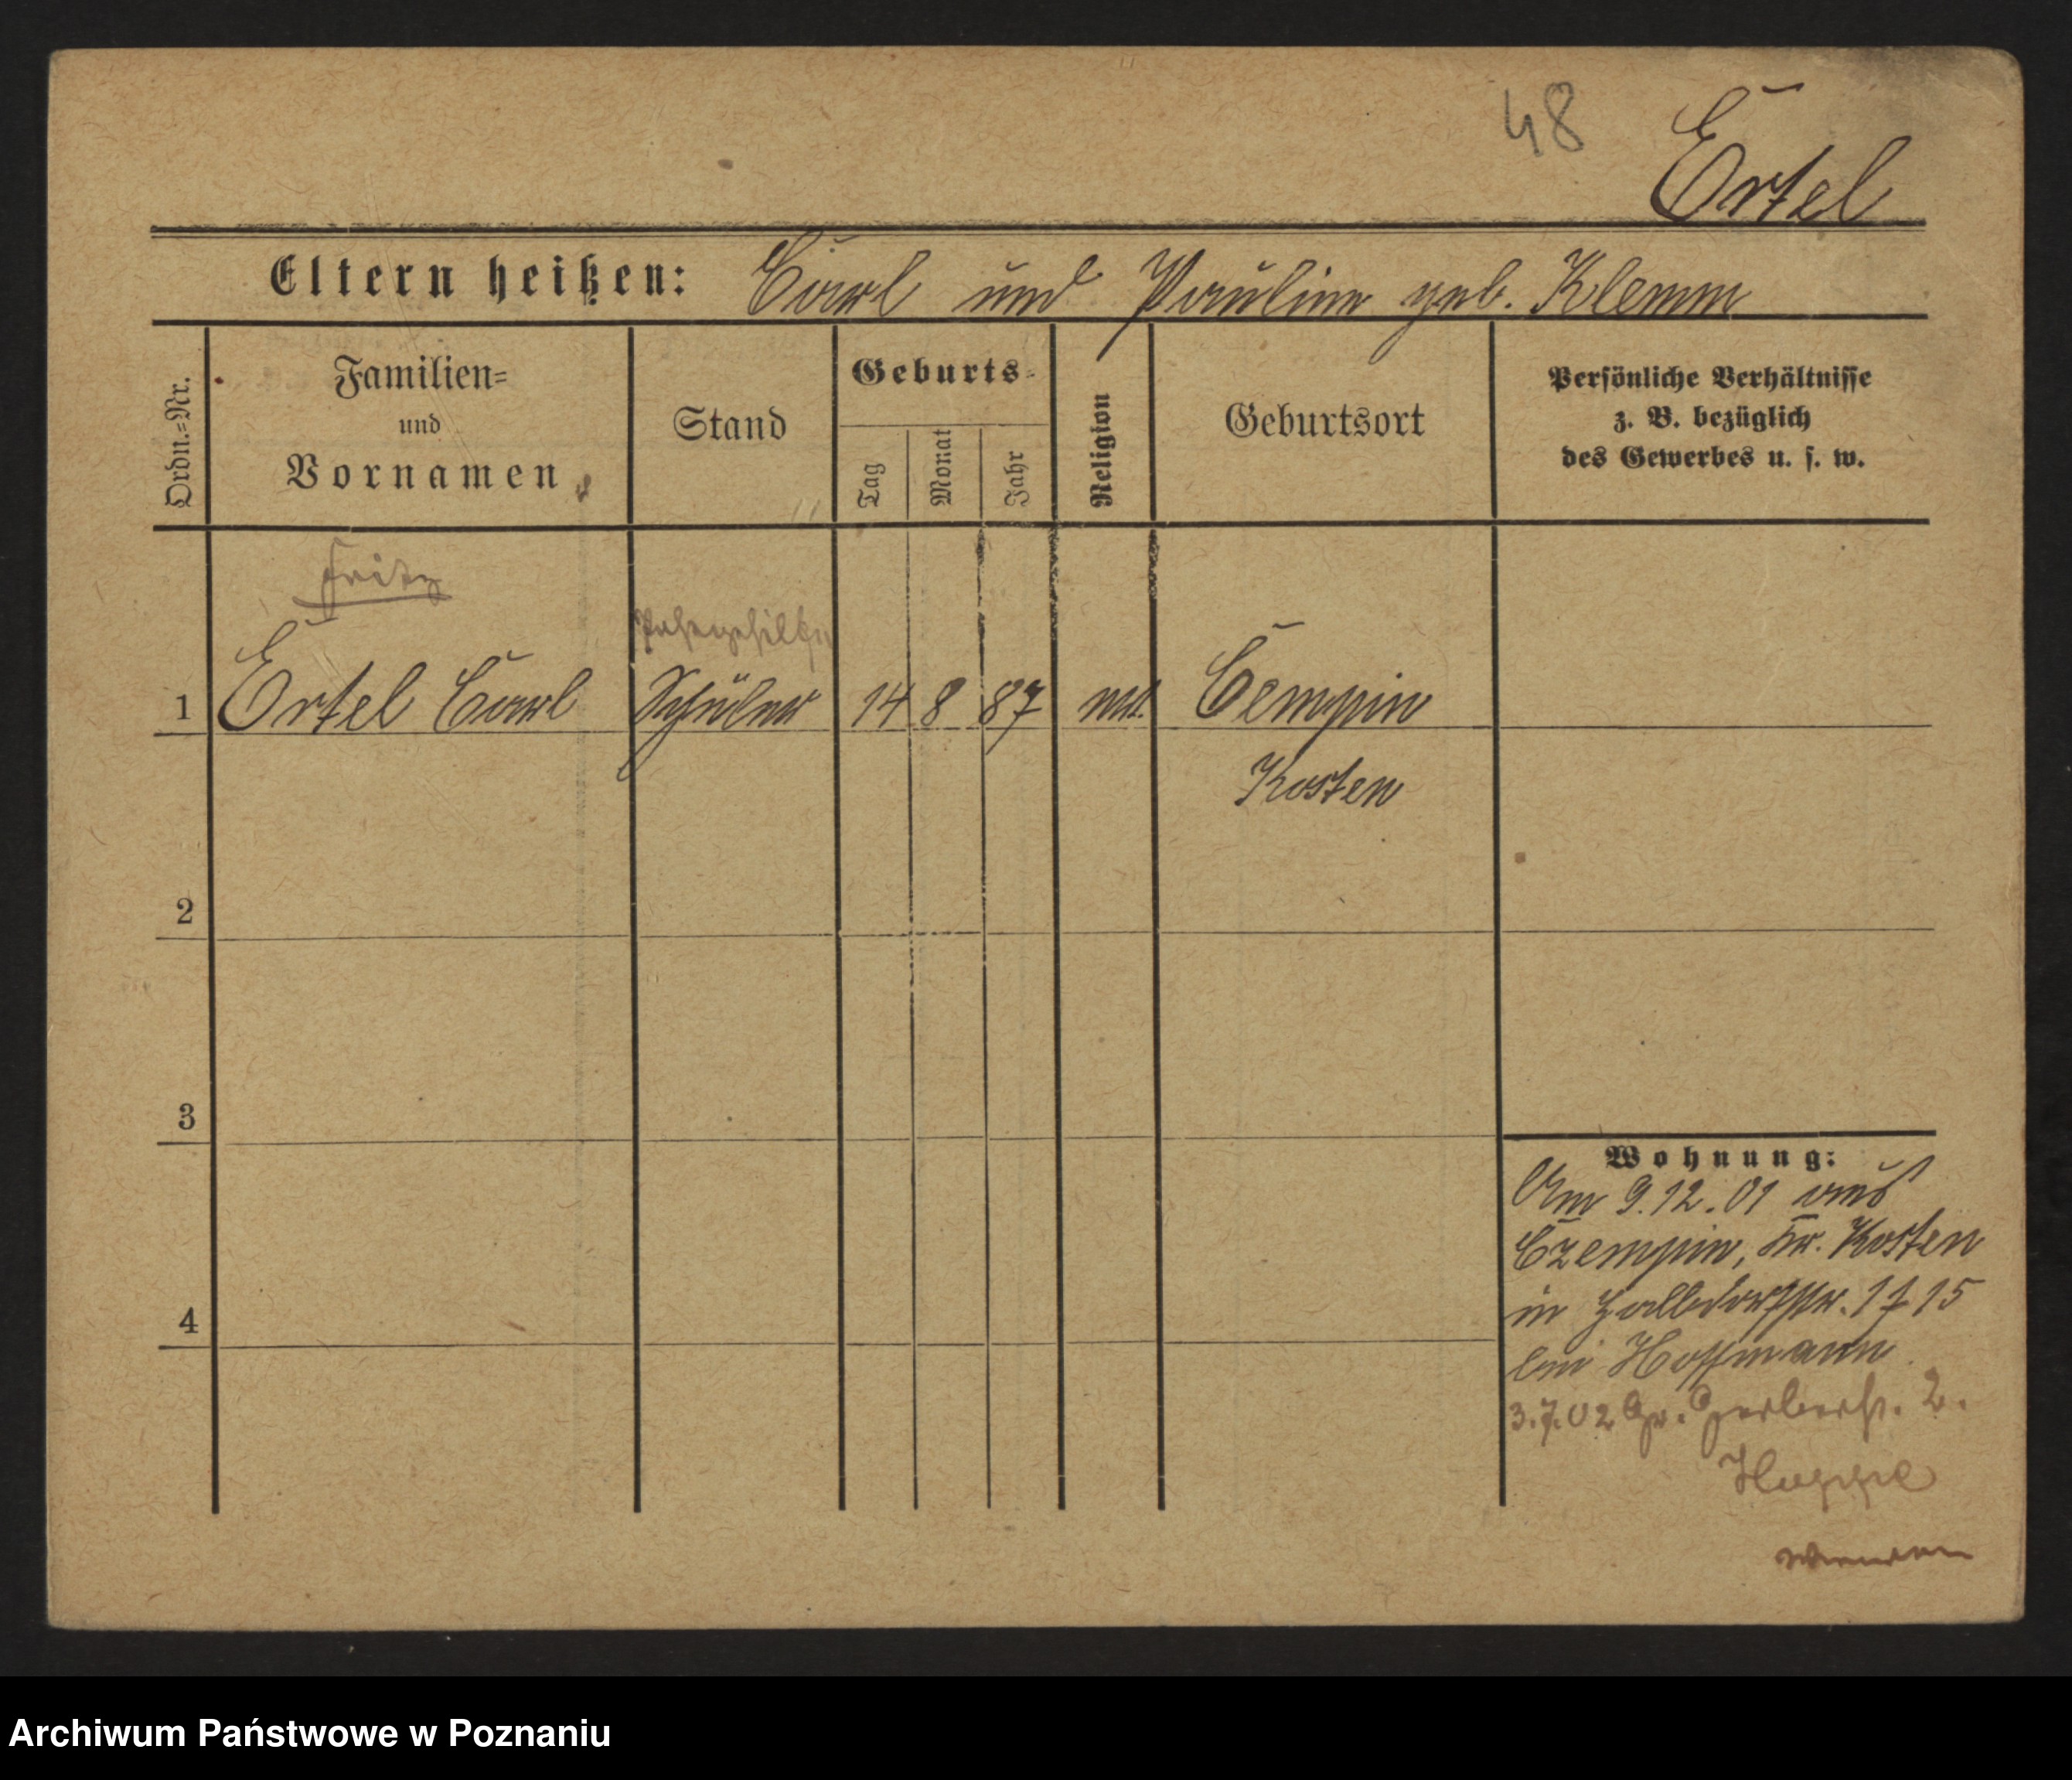 48
Ertel
Eltern heißen: Carl und Pauline geb. Klemm
Ordn.=Nr.
Familien=
und
Vornamen
Stand
Geburts=
Tag
Monat
Jahr
Religion
Geburtsort
Persönliche Verhältnisse
z. B. bezüglich
des Gewerbes u. s. w.
Fritz
1 Ertel Carl Schüler 14 8 87 Cempin
Kosten
2
3
4
Wohnung:
Am 9.12.01 aus
Czempin, Kr. Kosten
in Halbdorfstr. 17 15
bei Hoffmann
3.7.02 Gr. Gerberst. 2.
Hoppe
Archiwum Państwowe w Poznaniu